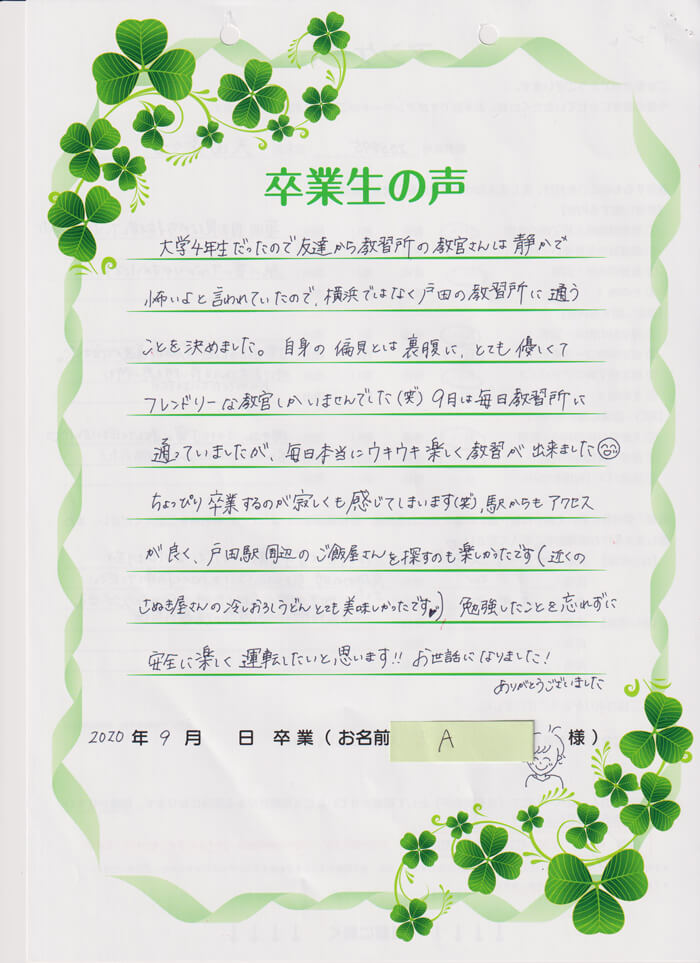 卒業生の声
大学4年生だったので友達から教習所の教官さんは静かで
怖いよと言われていたので、横浜ではなく戸田の教習所に通う
ことを決めました。自身の偏見とは裏腹に、とても優しくて
フレンドリーな教官しかいませんでした(笑) 9月は毎日教習所に
通っていましたが、毎日本当にウキウキ楽しく教習が出来ました😊
ちょっぴり卒業するのが寂しくも感じてしまいます(笑) 駅からもアクセス
が良く、戸田駅周辺のご飯屋さんを探すのも楽しかったです(近くの
さぬき屋さんの冷しおろしうどんとても美味しかったです♥) 勉強したことを忘れずに
安全に楽しく運転したいと思います!! お世話になりました!
ありがとうございました
2020年9月 日 卒業(お名前 A 様)